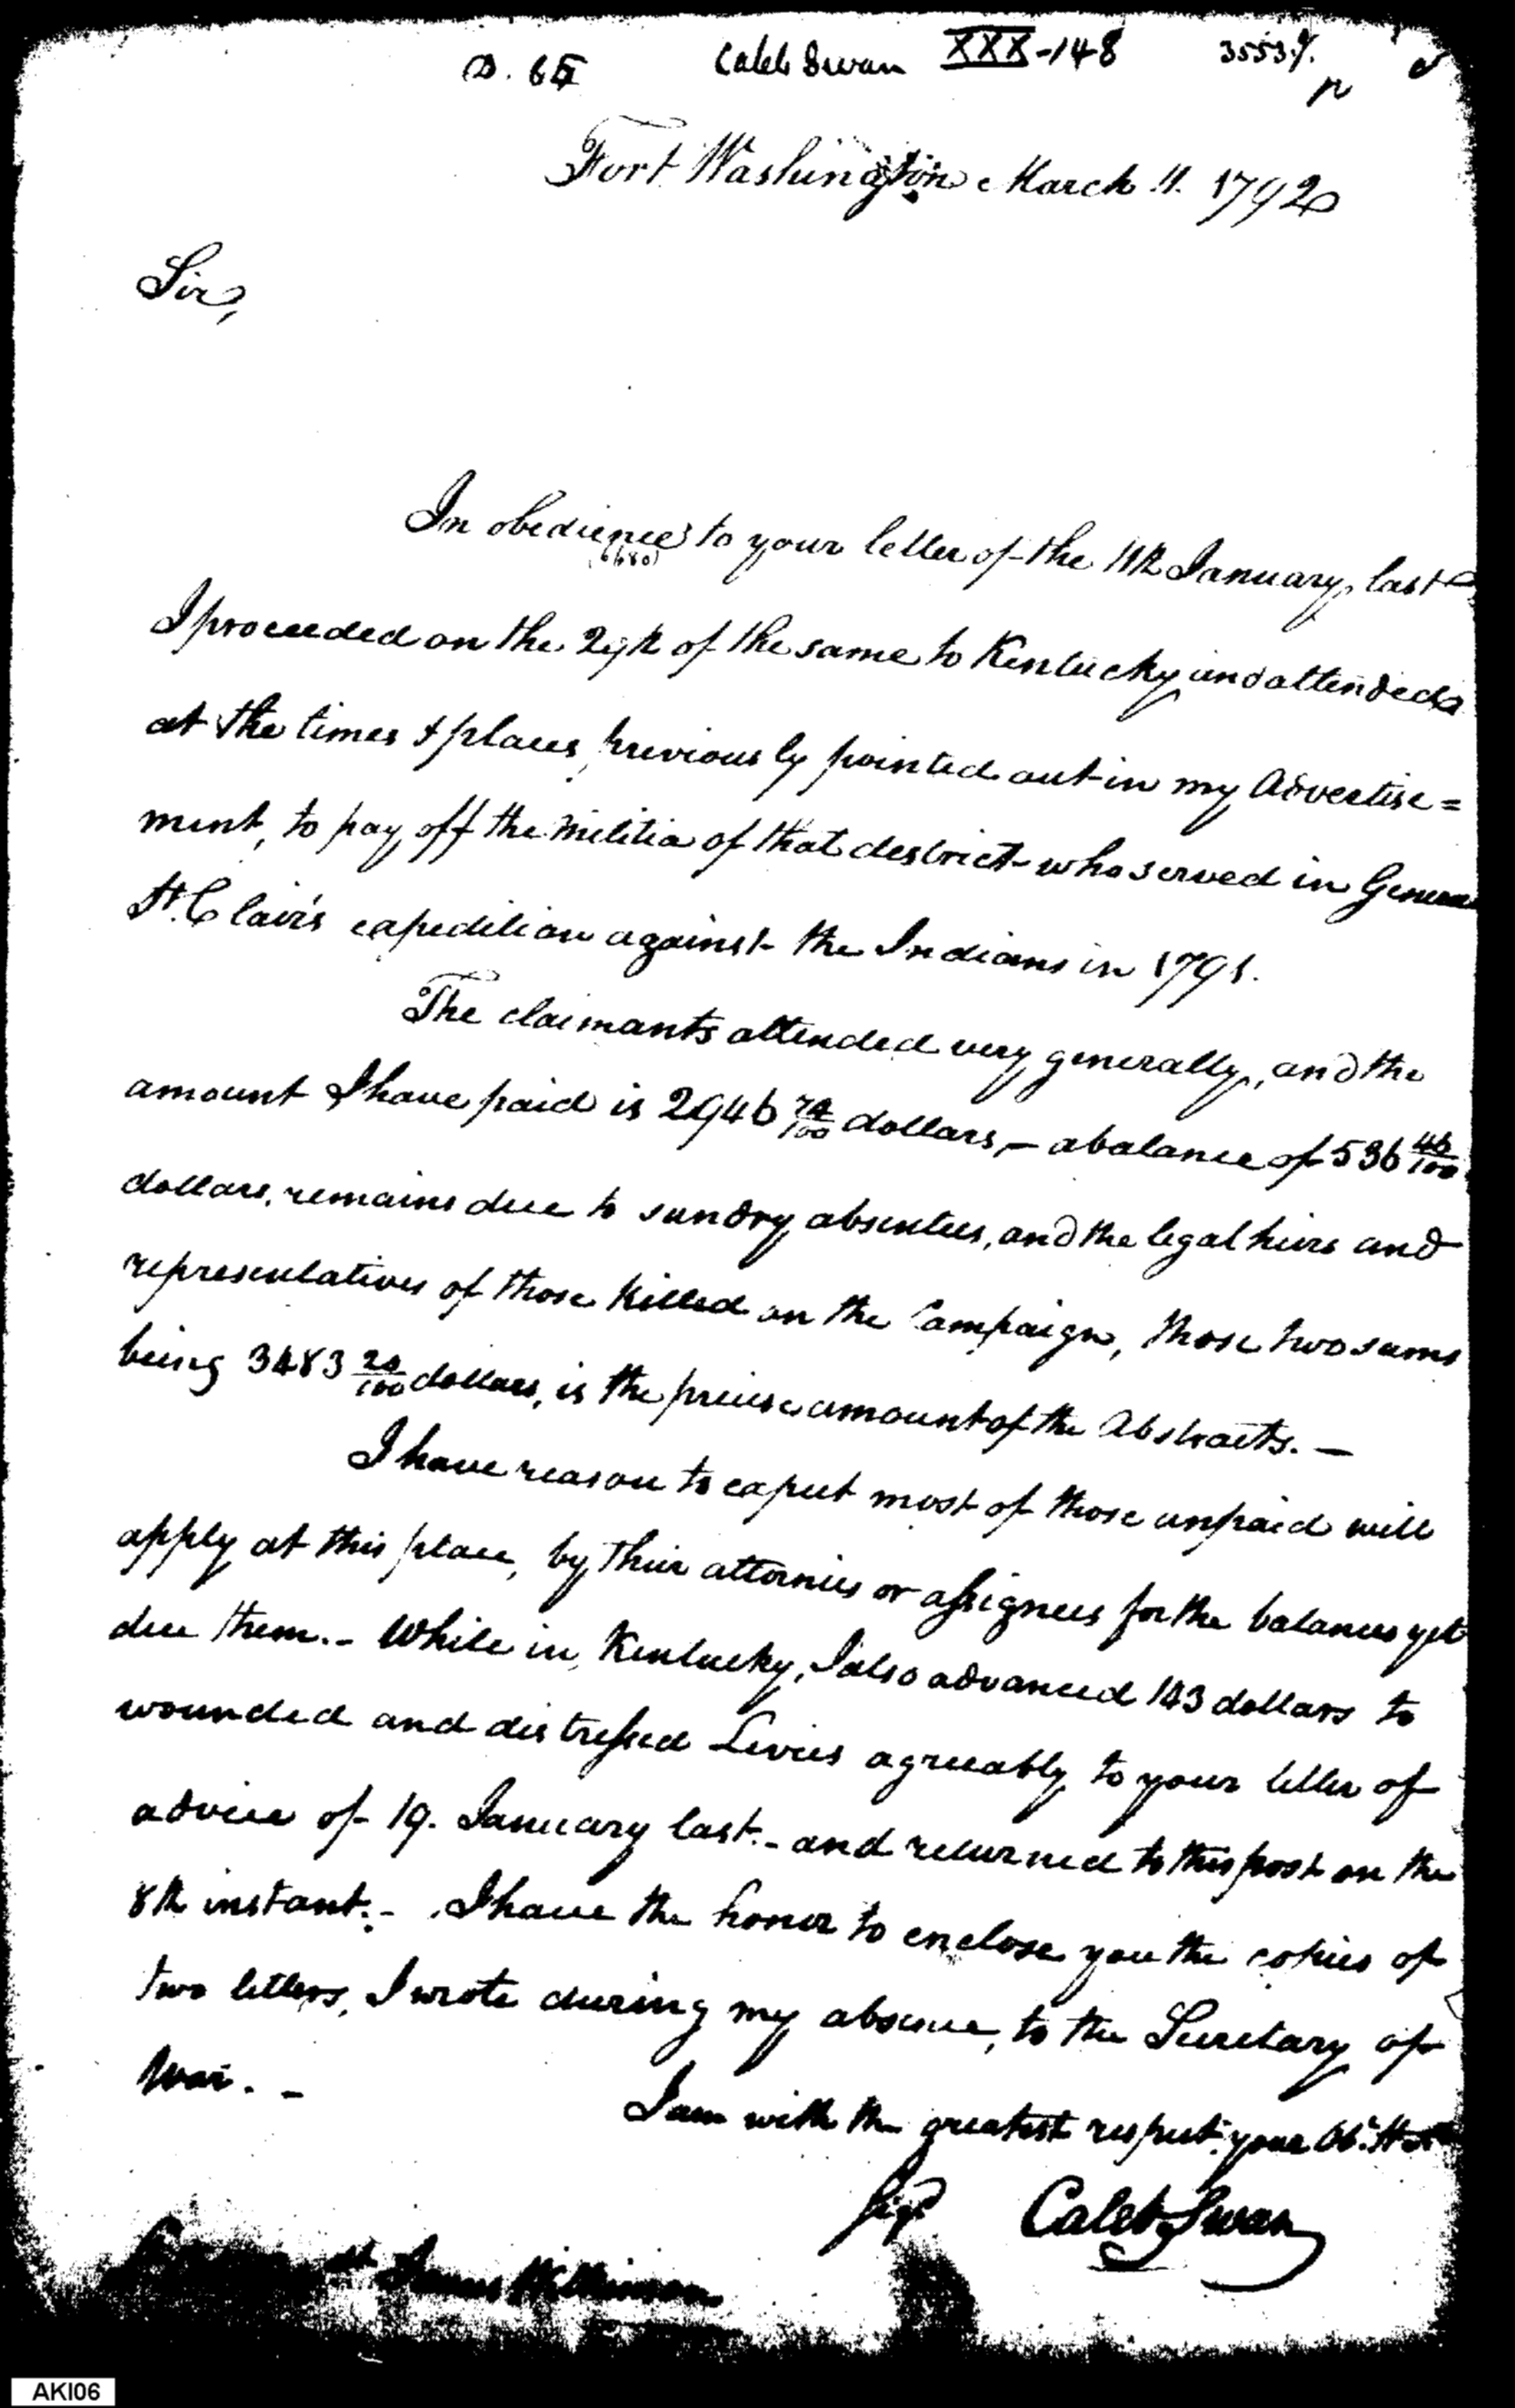 Caleb Swan XXX-148 3553
Fort Washington March 11. 1792
Sir,
In obedience to your letter of the 11th January last
(6680)
I proceeded on the 29th of the same to Kentucky and attended
at the times & places, previously pointed out in my Advertise=
ment, to pay off the Militia of that destrict who served in General
St. Clair's expedition against the Indians in 1791.
The claimants attended very generally, and the
amount I have paid is 2946 74/100 dollars, – a balance of 536 46/100
dollars, remains due to sundry absentees, and the legal heirs and
representatives of those killed on the Campaign, those two sums
being 3483 20/100 dollars, is the precise amount of the Abstracts. —
I have reason to expect most of those unpaid will
apply at this place, by their attornies or assignees for the balances yet
due them. - While in Kentucky, I also advanced 143 dollars to
wounded and distressed Levies agreeably to your letter of
advice of 19. January last. - and returned to this post on the
8th instant. - I have the honor to enclose you the copies of
two letters, I wrote during my absence, to the Secretary of
War. -
I am with the greatest respect your Ob. St
Sigd Caleb Swan
James Wilkinson
AKI06